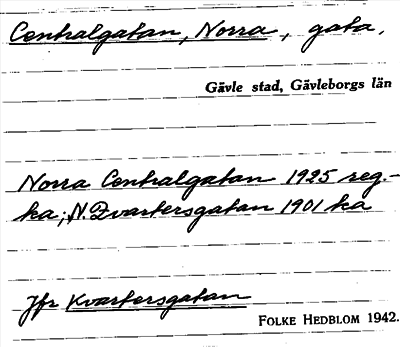 Centralgatan, Norra, gata.
Gävle stad, Gävleborgs län
Norra Centralgatan 1925 reg.-
ka; N. Qvartersgatan 1901 ka
Jfr Kvartersgatan
FOLKE HEDBLOM 1942.